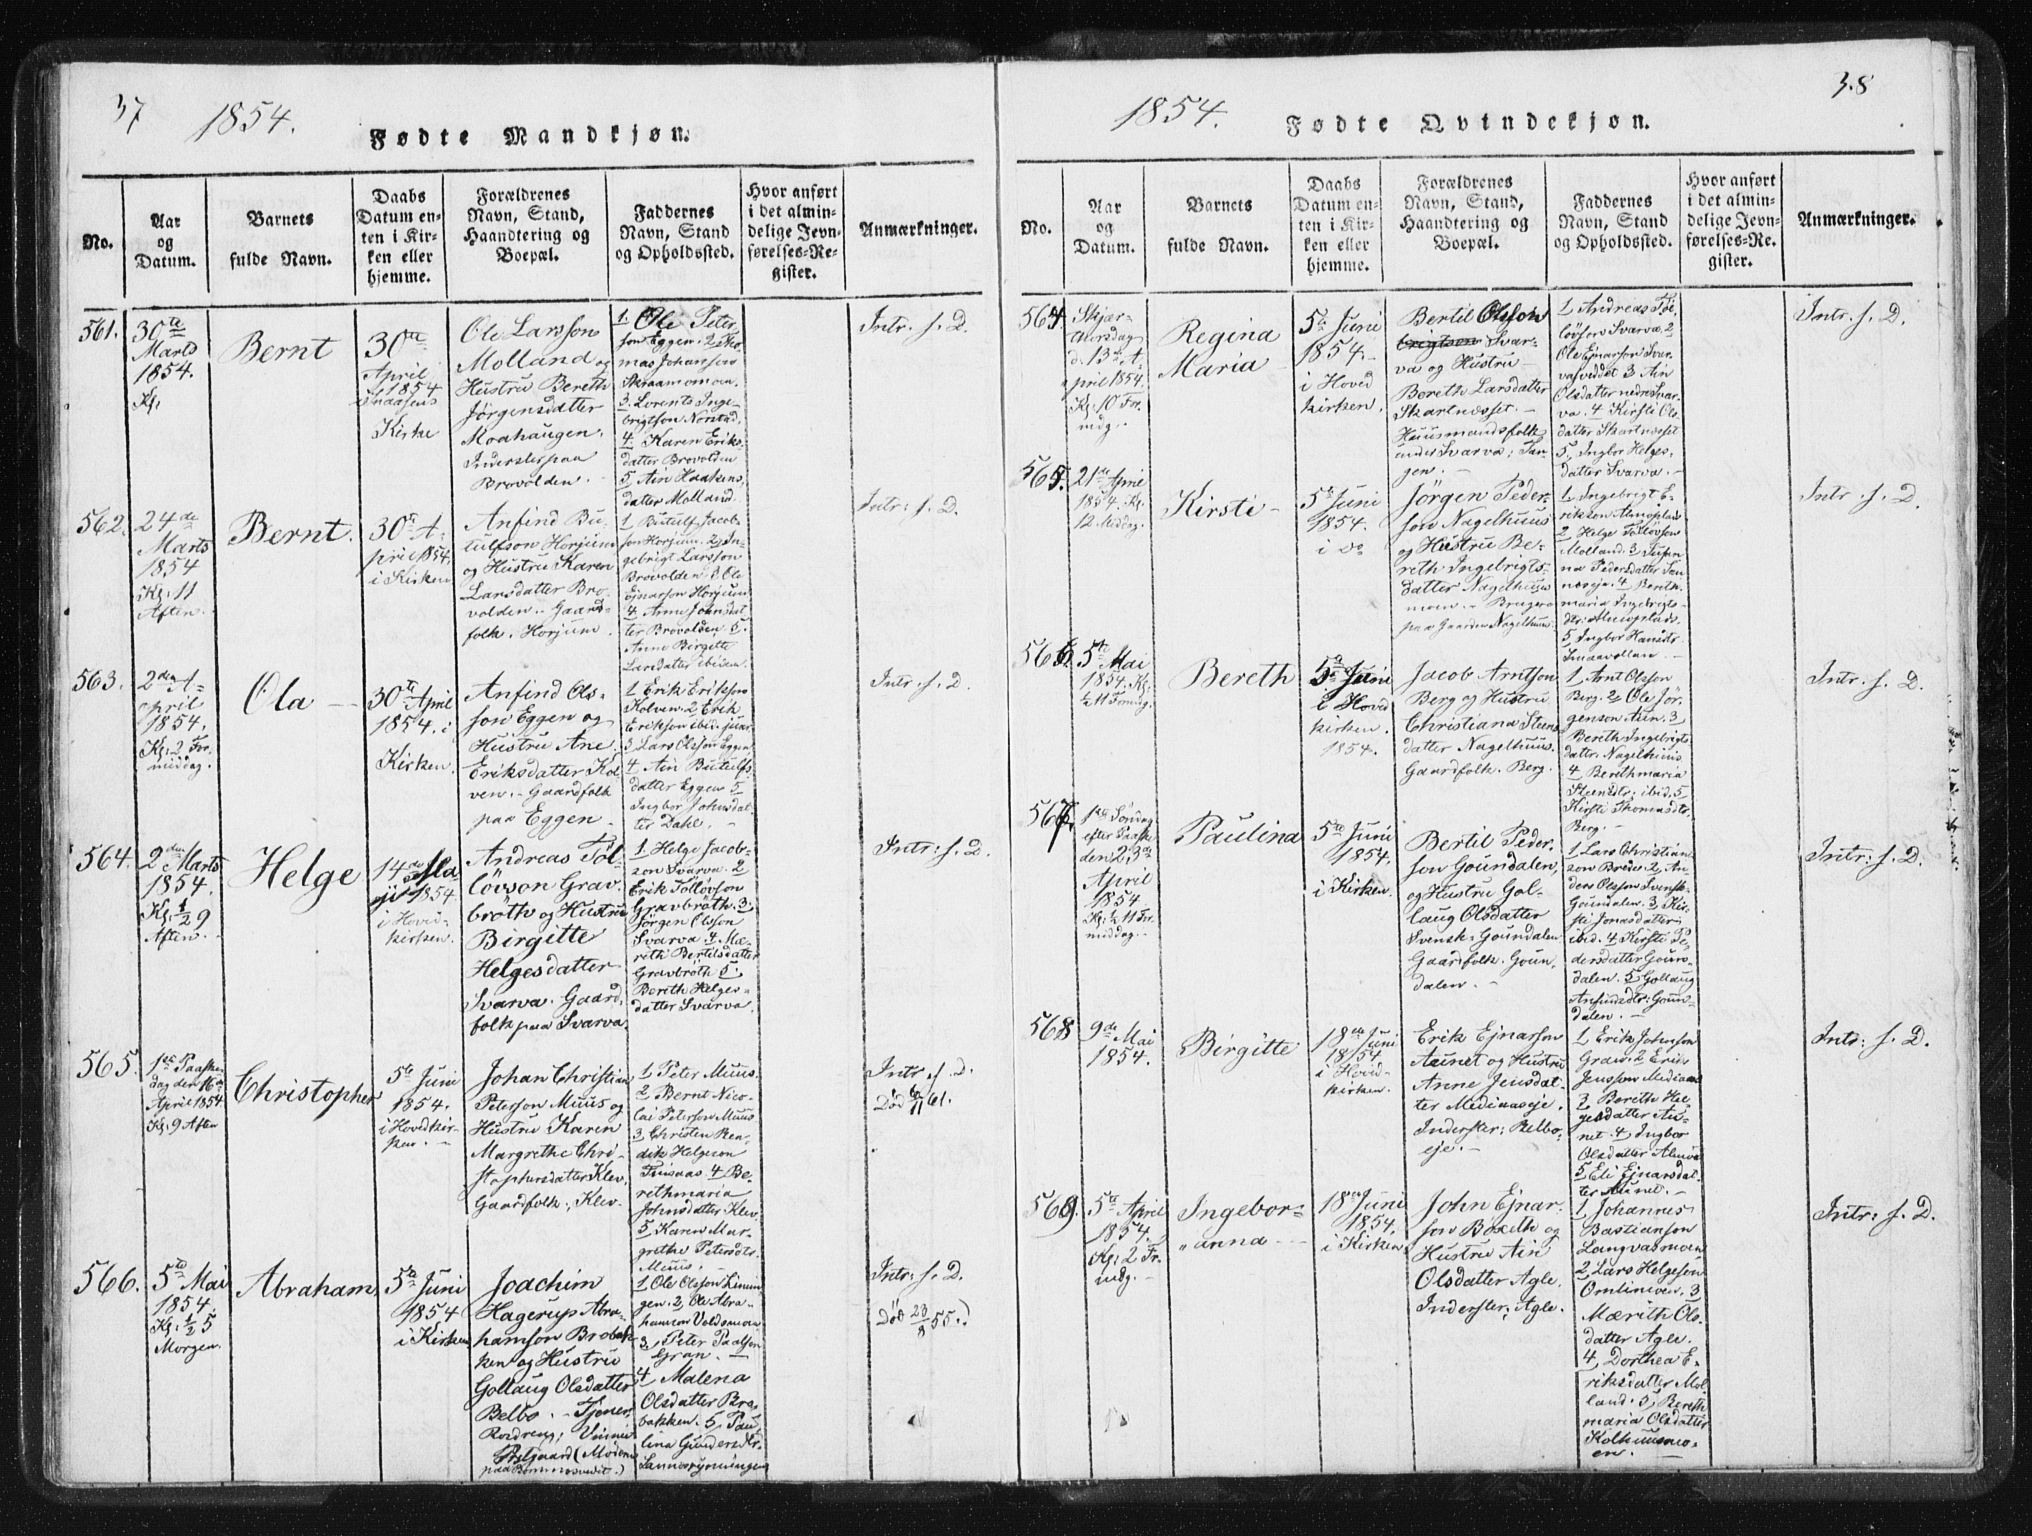 37
1854.
Fødte Mandkjøn.
No.
Aar
og
Datum.
Barnets
fulde Navn.
Daabs
Datum en-
ten i Kir-
ken eller
hjemme.
Forældrenes
Navn, Stand,
Haandtering og
Boepæl.
Faddernes
Navn, Stand
og Opholdssted.
Hvor anført
i det almin-
delige Jevn-
førelses-Re-
gister.
Anmærkninger.
561.
30te
Marts
1854.
Kl:
Bernt
30te
April
1854
i Snaasens
Kirke
Ole Larsson
Molland og
Hustru Bereth
Jørgensdatter
Moahaugen.
Inderster paa
Brovolden.
1. Ole Peter-
son Eggen. 2 Tho-
mas Johanson
Skraamomoen.
3. Lorents Inge-
brigtson Norstad.
4. Karen Eriks-
datter Brovolden
5. Ain Haakens-
datter Molland.
Intr: f. D.
562.
24de
Marts
1854
Kl: 11
Aften.
Bernt.
30te A-
pril 1854.
i Kirken
Anfind Bu-
tulfson Horjum
og Hustru Karen
Larsdatter Bro-
volden. Gaard-
folk. Horjum.
1 Butulf Jacob-
son Horjum. 2 In-
gebrigt Larsson
Brovolden 3 Ole
Ejnarson Horjum
4. Anne Johnsdat-
ter Brovolden 5.
Anne Birgitte
Larsdatter ibidem.
Intr: f. D.
563.
2den A-
pril
1854.
Kl: 2 For-
middag.
Ola
30te April
1854. i
Kirken.
Anfind Ols-
son Eggen og
Hustru Ane
Eriksdatter Kol-
ven. - Gaardfolk
paa Eggen.
1 Erik Erikson
Kolven. 2 Erik
Erikson ibid: junr
3 Lars Olsson Eggen
4 Ain Butulfs-
datter Eggen 5
Ingbor Johnsdat-
ter Dahl.
Intr: f. D.
564.
2den Marts
1854.
Kl: ½ 9
Aften.
Helge
14de Ma-
ji 1854
i Hoved-
kirken.
Andreas Tol-
løvson Grav-
brøth og Hustru
Birgitte
Helgesdatter
Svarva. Gaard-
folk paa Svarva.
1. Helge Jacob-
son Svarva. 2
Erik Tolløvson
Gravbrøth. 3
Jørgen Olsson
Svarva 4 Mæ-
rith Bertilsdatter
Gravbrøth 5.
Bereth Helges-
datter Svarva.
Intr: f. D.
565.
1ste Paaske-
dag den 16de
April 1854
Kl: 9 Aften
Christopher
5te Juni
1854.
i Hovedkir-
ken.
Johan Christian
Peterson Muus og
Hustru Karen
Margrethe Chri-
stophersdatter Klev.
Gaardfolk, Klev.
1 Peter Muus.
2 Bernt Nico-
lai Peterson Muus
3 Christen Ren-
dik Helgeson
4 Be-
rethmaria
Johnsdatter Klev.
5 Karen Mar-
grethe Petersdtr.
Muus.
Intr: f. D.
Død 6/11 61.
566.
5te Mai
1854.
Kl: ½ 5
Morgen.
Abraham.
5te Juni
1854
i Kirken
Joachim
Hagerup Abra-
hamson Brobak-
ken og Hustru
Gollaug Olsdatter
Belbo. - Tjener,
Vinnie
Østgaard
1 Ole Olsson Linum-
gen. 2, Ole Abra-
hamson Voldsmoen
3, Peter Paalson
Gran.
4 Malena
Olsdatter Bro-
bakken. 5, Pau-
lina Gundersdtr.
Intr: f. D.
Død 23/8 55.)
38
1854.
Fødte Qvindekjøn.
No.
Aar
og
Datum.
Barnets
fulde Navn.
Daabs
Datum en-
ten i Kir-
ken eller
hjemme.
Forældrenes
Navn, Stand,
Haandtering og
Boepæl.
Faddernes
Navn, Stand
og Opholdssted.
Hvor anført
i det almin-
delige Jevn-
førelses-Re-
gister.
Anmærkninger.
564.
Skjær-
thorsdag
d: 13de A-
pril 1854.
Kl: 10 For-
midg.
Regina
Maria
5te Juni
1854.
i Hoved
kirken.
Bertil Olsson
Svar-
va og Hustru
Bereth Larsdatter
Skartnesset.
Huusmandsfolk
under Svarva, Tan-
gen.
1 Andreas Tol-
løvson Svarva. 2
Ole Ejnarson Svar-
vasveddet 3 Ain
Olsdatter nedre Svar-
va. 4 Kirsti Ols-
datter Skartnesset
5, Ingbor Helges-
datter Svarva.
Intr: f. D.
565.
21de April
1854. Kl:
12 Middag.
Kirsti
5te Juni
1854.
i do
Jörgen Peder-
son Nagelhuus
og Hustru Be-
reth Ingebrigts-
datter Nagelhuus
moen. - Brugere
paa Gaarden Nagelhuus.
1, Ingebrigt E-
rikson
2 Helge Tolløvson
Molland. 3
Pedersdatter
4 Bereth-
maria Ingebrigts-
dtr:
5, Ingbor Hansdtr.
Intr: f. D.
566.
5te Mai
1854. Kl:
½ 11 Formdg.
Bereth
5te Juni
i Hoved
kirken.
1854.
Jacob Arntson
Berg og Hustru
Christiana Steens-
datter Nagelhuus.
Gaardfolk. Berg.
1 Arnt Olsson
Berg. 2 Ole Jør-
genson Ain. 3
Bereth Ingebrigts-
datter Nagelhuus
4 Berethmaria
Steensdtr: ibid. 5
Kirsti Thomasdtr.
Berg.
Intr: f. D.
567.
1ste Søndag
efter Paaske
den 23de
April
1854
Kl: ½ 11 For-
middag.
Paulina
5te Juni
1854.
i Kirken
Bertil Peder-
son Goundalen,
og Hustru Gol-
laug Olsdatter
Svensk-Goundalen
Gaardfolk. Goun-
dalen.
1 Lars Christian-
son Brede. 2, An-
ders Olsson Svensk-
Goundalen. 3 Kir-
sti Jonasdatter
ibid. 4 Kirsti Pe-
dersdatter Goun-
dalen. 5 Gollaug
Anfindsdtr: Goun-
dalen.
Intr: f. D.
568
9de Mai
1854.
Birgitte
18de Juni
1854.
i Hoved-
kirken.
Erik Ejnarson
Aunet og Hustru
Anne Jensdat-
ter Mediaaseje.
Inderster; Belbo-
eje.
1 Erik Johnson
Gran. 2 Erik
Jensson Mediaas
3 Bereth Hel-
gesdatter Au-
net 4 Ingbor
Olsdatter
5 Eli Ejnarsdat-
ter Aunet.
Intr: f. D.
569.
5te April
1854.
Kl: 2 Fr.
mdg.
Ingebor-
anna
18de Juni
1854.
i Kirken
John Ejnar-
son Bøeth og
Hustru Ain
Olsdatter Agle.
Inderster, Agle.
1 Johannes
Bastianson
Langvasmoen
2, Lars Helgeson
Omlimoen. 3
Mærith Ols-
datter Agle.
4, Dorthea E-
riksdatter Mol-
land. 5, Bereth-
maria Olsdatter
Kolkuusmo-
en.
Intr: f. D.